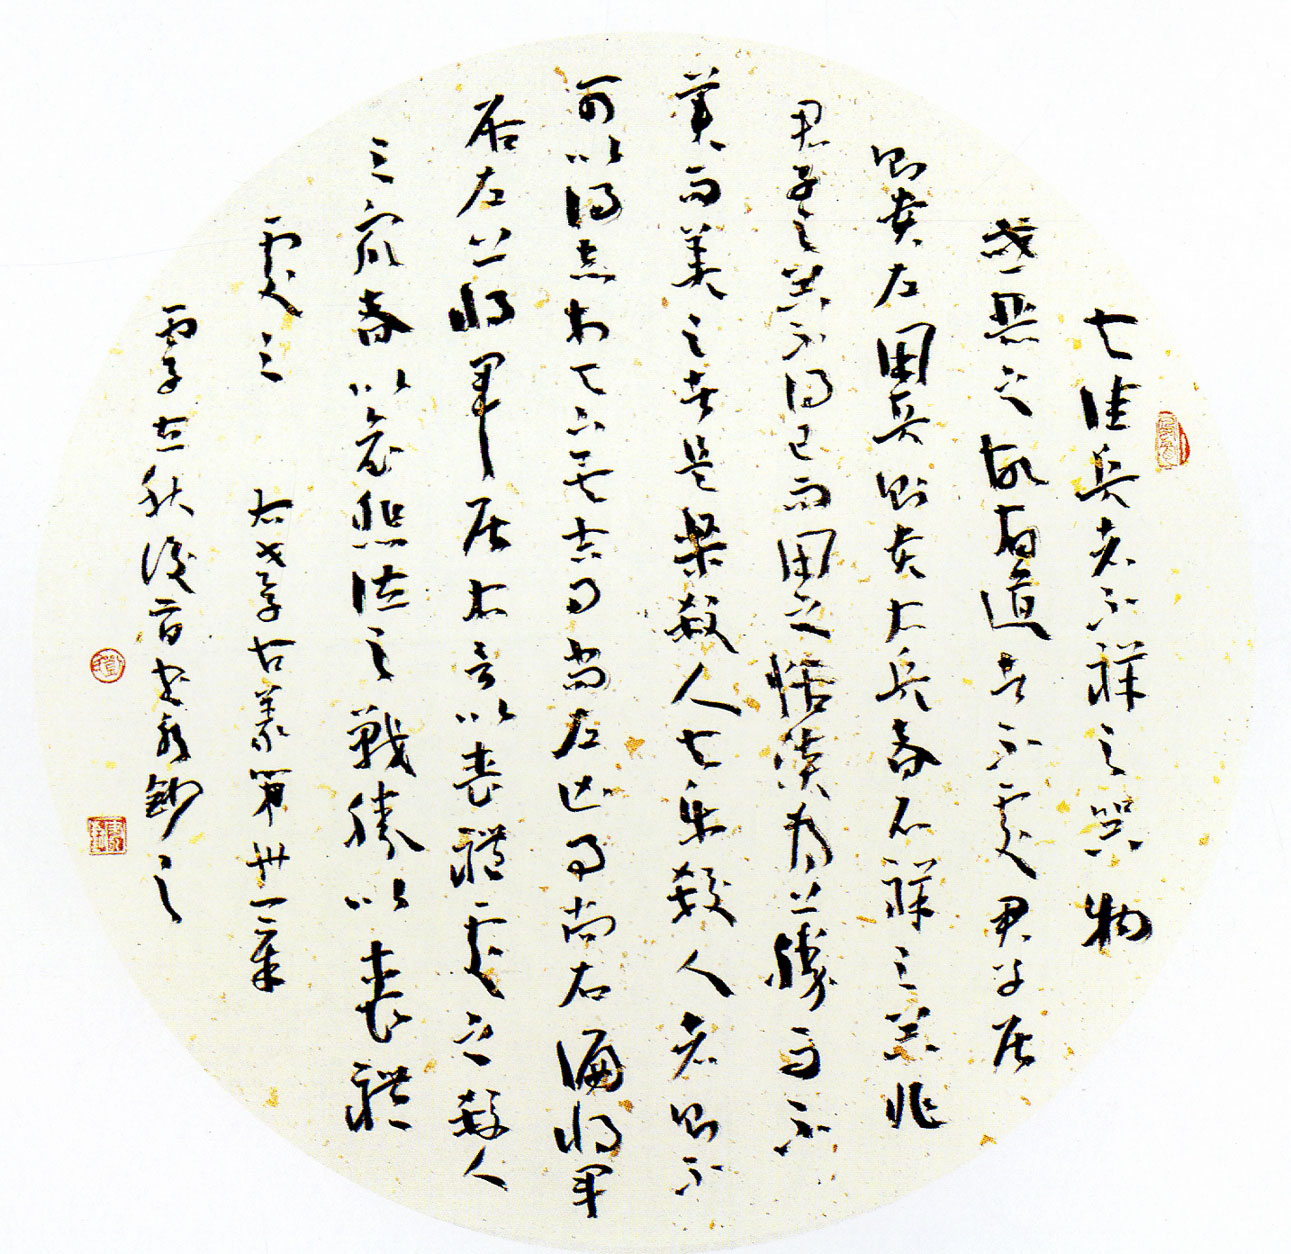 夫佳兵者不祥之器物
或惡之故有道者不處君子居
則貴左用兵則貴右兵者不祥之器非
君子之器不得已而用之恬淡為上勝而不
美而美之者是樂殺人夫樂殺人者則不
可以得志於天下矣吉事尚左凶事尚右偏將軍
居左上將軍居右言以喪禮處之殺人
之衆者以哀悲泣之戰勝以喪禮
處之 右老子古義第卅一章
秋後 鈔之